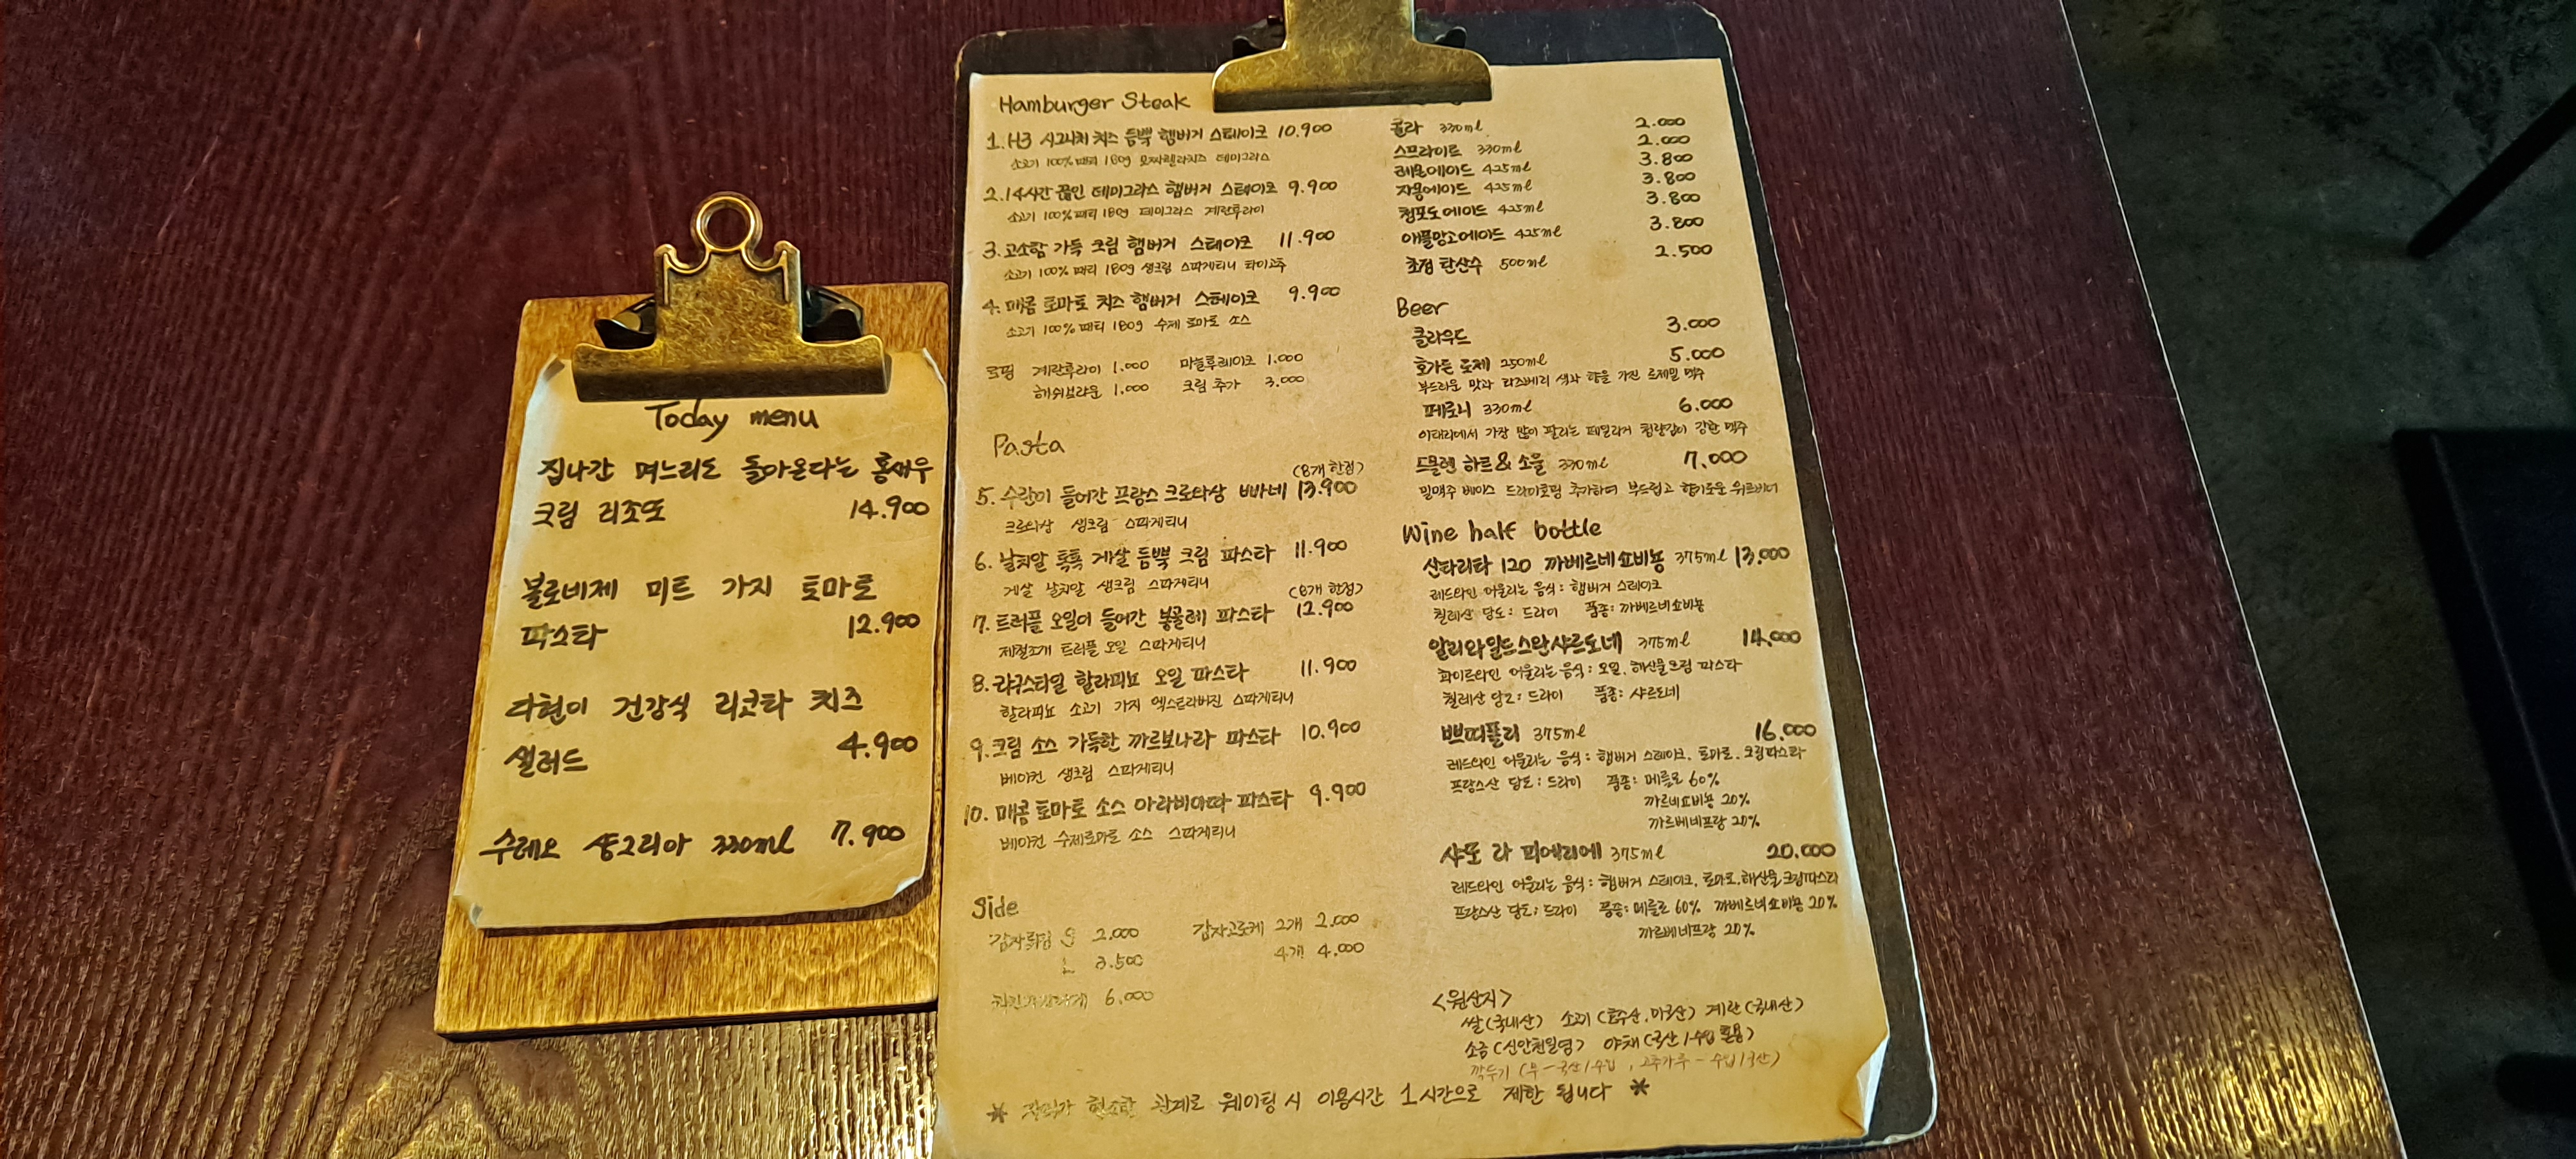 Today menu
집나간 며느리도 돌아온다는 홍새우
크림 리조또 14.900
볼로네제 미트 가지 토마토
파스타 12.900
다현이 건강식 리코타 치즈
샐러드 4.900
수레오 샹그리아 330ml 7.900
Hamburger Steak
1. H3 시그니처 치즈 듬뿍 햄버거 스테이크 10.900
소고기 100% 패티 180g 모짜렐라치즈 데미그라스
2. 14시간 끓인 데미그라스 햄버거 스테이크 9.900
소고기 100% 패티 180g 데미그라스 계란후라이
3. 고소함 가득 크림 햄버거 스테이크 11.900
소고기 100% 패티 180g 생크림 스파게티니 타이고추
4. 매콤 토마토 치즈 햄버거 스테이크 9.900
소고기 100% 패티 180g 수제 토마토 소스
토핑 계란후라이 1.000 마늘후레이크 1.000
해쉬브라운 1.000 크림 추가 3.000
Pasta
(8개 한정)
5. 수란이 들어간 프랑스 크로와상 빠네 13.900
크로와상 생크림 스파게티니
6. 날치알 톡톡 게살 듬뿍 크림 파스타 11.900
게살 날치알 생크림 스파게티니
(8개 한정)
7. 트러플 오일이 들어간 봉골레 파스타 12.900
제철조개 트러플 오일 스파게티니
8. 라구스타일 할라피뇨 오일 파스타 11.900
할라피뇨 소고기 가지 엑스트라버진 스파게티니
9. 크림 소스 가득한 까르보나라 파스타 10.900
베이컨 생크림 스파게티니
10. 매콤 토마토 소스 아라비아따 파스타 9.900
베이컨 수제토마토 소스 스파게티니
Side
감자튀김 S 2.000 감자고로케 2개 2.000
L 3.500 4개 4.000
6.000
콜라 330ml 2.000
스프라이트 330ml 2.000
레몬에이드 425ml 3.800
자몽에이드 425ml 3.800
청포도에이드 425ml 3.800
애플망고에이드 425ml 3.800
초정 탄산수 500ml 2.500
Beer
클라우드 3.000
호가든 로제 250ml 5.000
부드러운 맛과 라즈베리 색과 향을 가진 로제밀 맥주
페로니 330ml 6.000
이태리에서 가장 많이 팔리는 페일라거 청량감이 강한 맥주
드몰렌 하르 & 소울 330ml 7.000
밀맥주 베이스 드라이호핑 추가하여 부드럽고 향기로운
Wine half bottle
산타리타 120 까베르네쇼비뇽 375ml 13.000
레드와인 어울리는 음식 : 햄버거 스테이크
칠레산 당도 : 드라이 품종 : 까베르네쇼비뇽
알리와일드스완샤르도네 375ml 14.000
화이트와인 어울리는 음식 : 오일, 해산물크림 파스타
칠레산 당도 : 드라이 품종 : 샤르도네
쁘띠폴리 375ml 16.000
레드와인 어울리는 음식 : 햄버거 스테이크, 토마토, 크림파스타
프랑스산 당도 : 드라이 품종 : 메를로 60%
까르네쇼비뇽 20%
까르베네프랑 20%
샤또 라 피에리에 375ml 20.000
레드와인 어울리는 음식 : 햄버거 스테이크, 토마토, 해산물 크림파스타
프랑스산 당도 : 드라이 품종 : 메를로 60% 까베르네쇼비뇽 20%
까르베네프랑 20%
<원산지>
쌀(국내산) 소고기(호주산, 미국산) 계란(국내산)
소금(신안천일염) 야채(국산/수입 혼용)
깍두기 (무-국산/수입, 고추가루-수입/국산)
* 자리가 협소한 관계로 웨이팅 시 이용시간 1시간으로 제한 됩니다 *